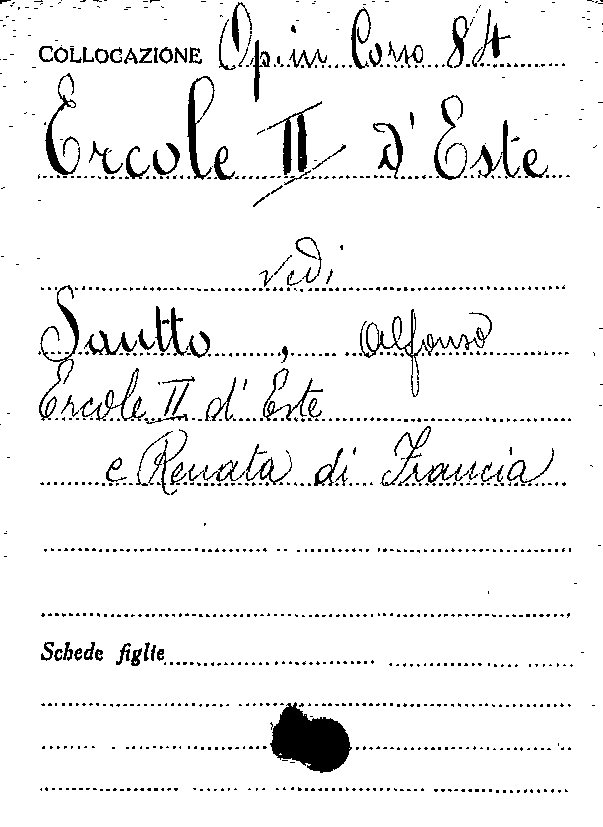 COLLOCAZIONE Op. in Corso 84
Ercole II d'Este
vedi
Sautto, Alfonso
Ercole II d'Este
e Renata di Francia
Schede figlie